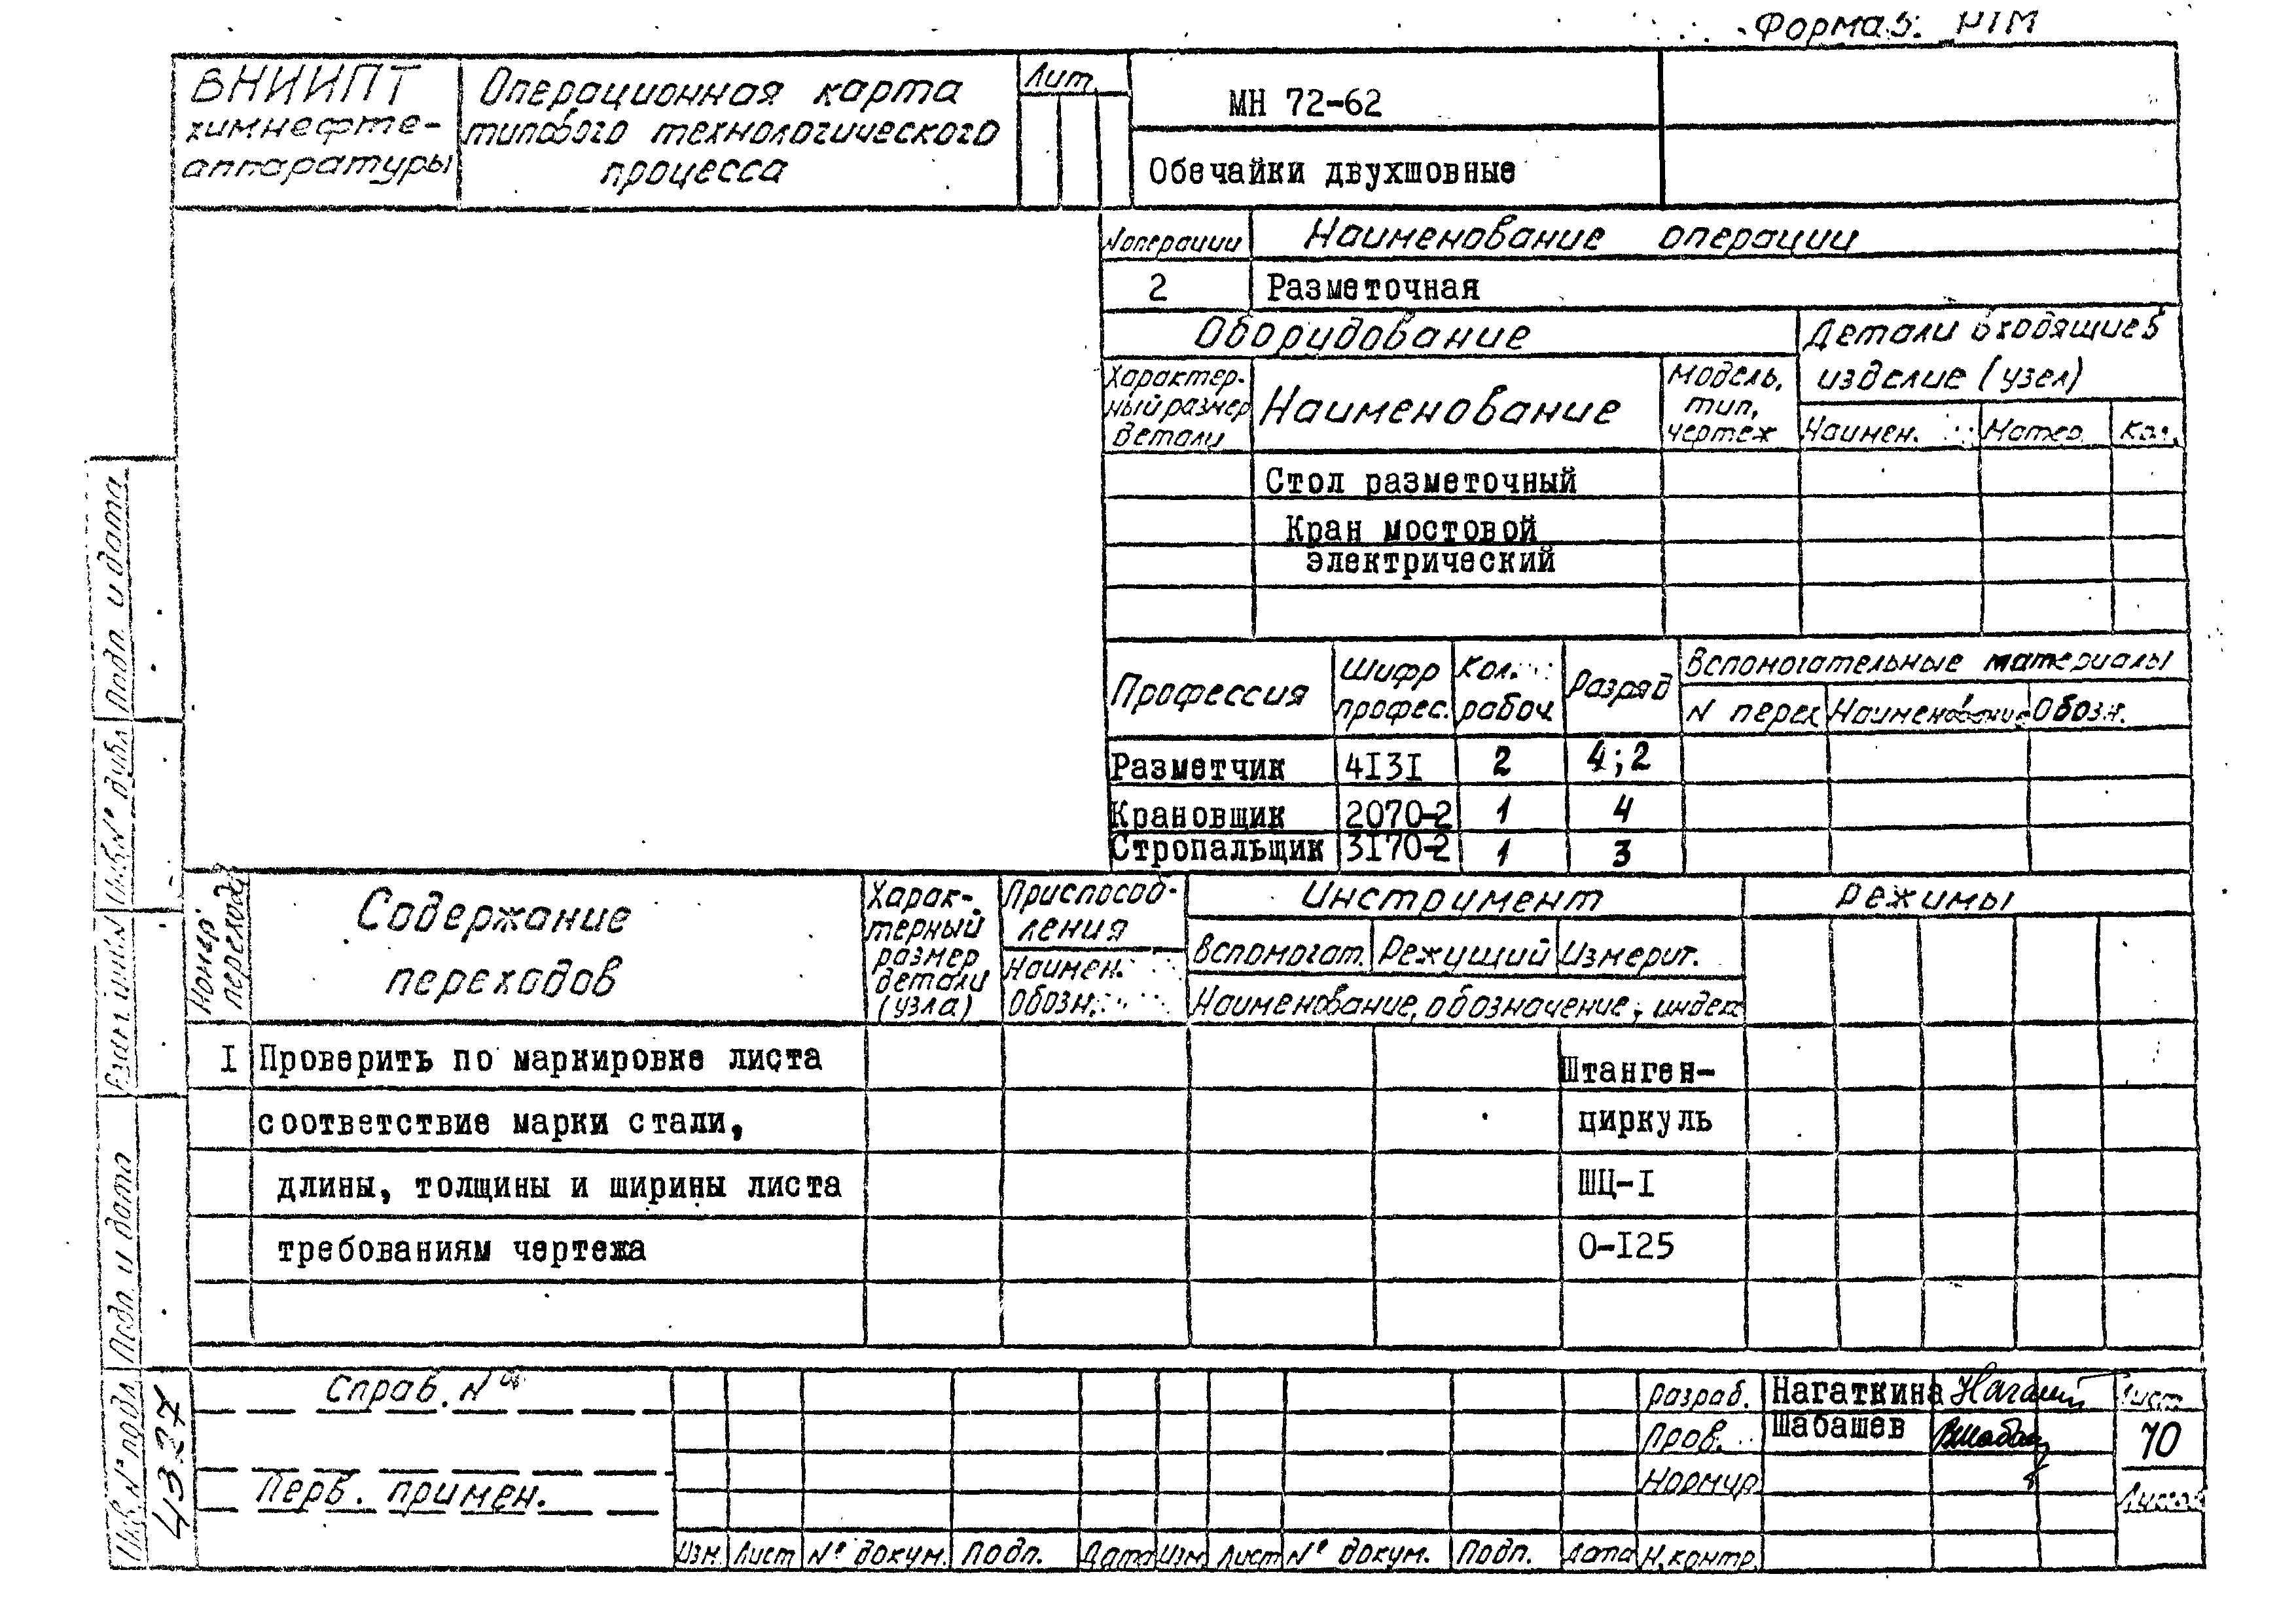 Форма 5.
ВНИИПТ
химнефте-
аппаратуры
Операционная карта
типового технологического
процесса
Лит.
МН 72-62
Обечайки двухшовные
N операции
Наименование операции
2
Разметочная
Оборудование
Детали входящие в
изделие (узел)
Характер-
ный размер
детали
Наименование
Модель,
тип,
чертеж
Наимен.
Матер.
Кол.
Стол разметочный
Кран мостовой
электрический
Профессия
Шифр
профес.
Кол.
рабоч.
Разряд
Вспомогательные материалы
N перех
Наименование
Обозн.
Разметчик 4I3I 2 4;2
Крановщик 2070-2 1 4
Стропальщик 3I70-2 1 3
Номер
перехода
Содержание
переходов
Харак-
терный
размер
детали
(узла)
Приспособ-
ления
Наимен.
Обозн.
Инструмент
Вспомогат.
Режущий
Измерит.
Наименование, обозначение, индекс
Режимы
I Проверить по маркировке листа
соответствие марки стали,
длины, толщины и ширины листа
требованиям чертежа
Штанген-
циркуль
ШЦ-I
0-I25
Подп. и дата
Инв. N° дубл
Взам. инв. N
Подп. и дата
Инв. N° подл
4327
Справ. N°
Перв. примен.
Изм. Лист N° докум. Подп. Дата Изм. Лист N° докум. Подп. Дата
Разраб. Нагаткина
Пров. Шабашев
Нормир
Н.контр.
Лист
70
Листов